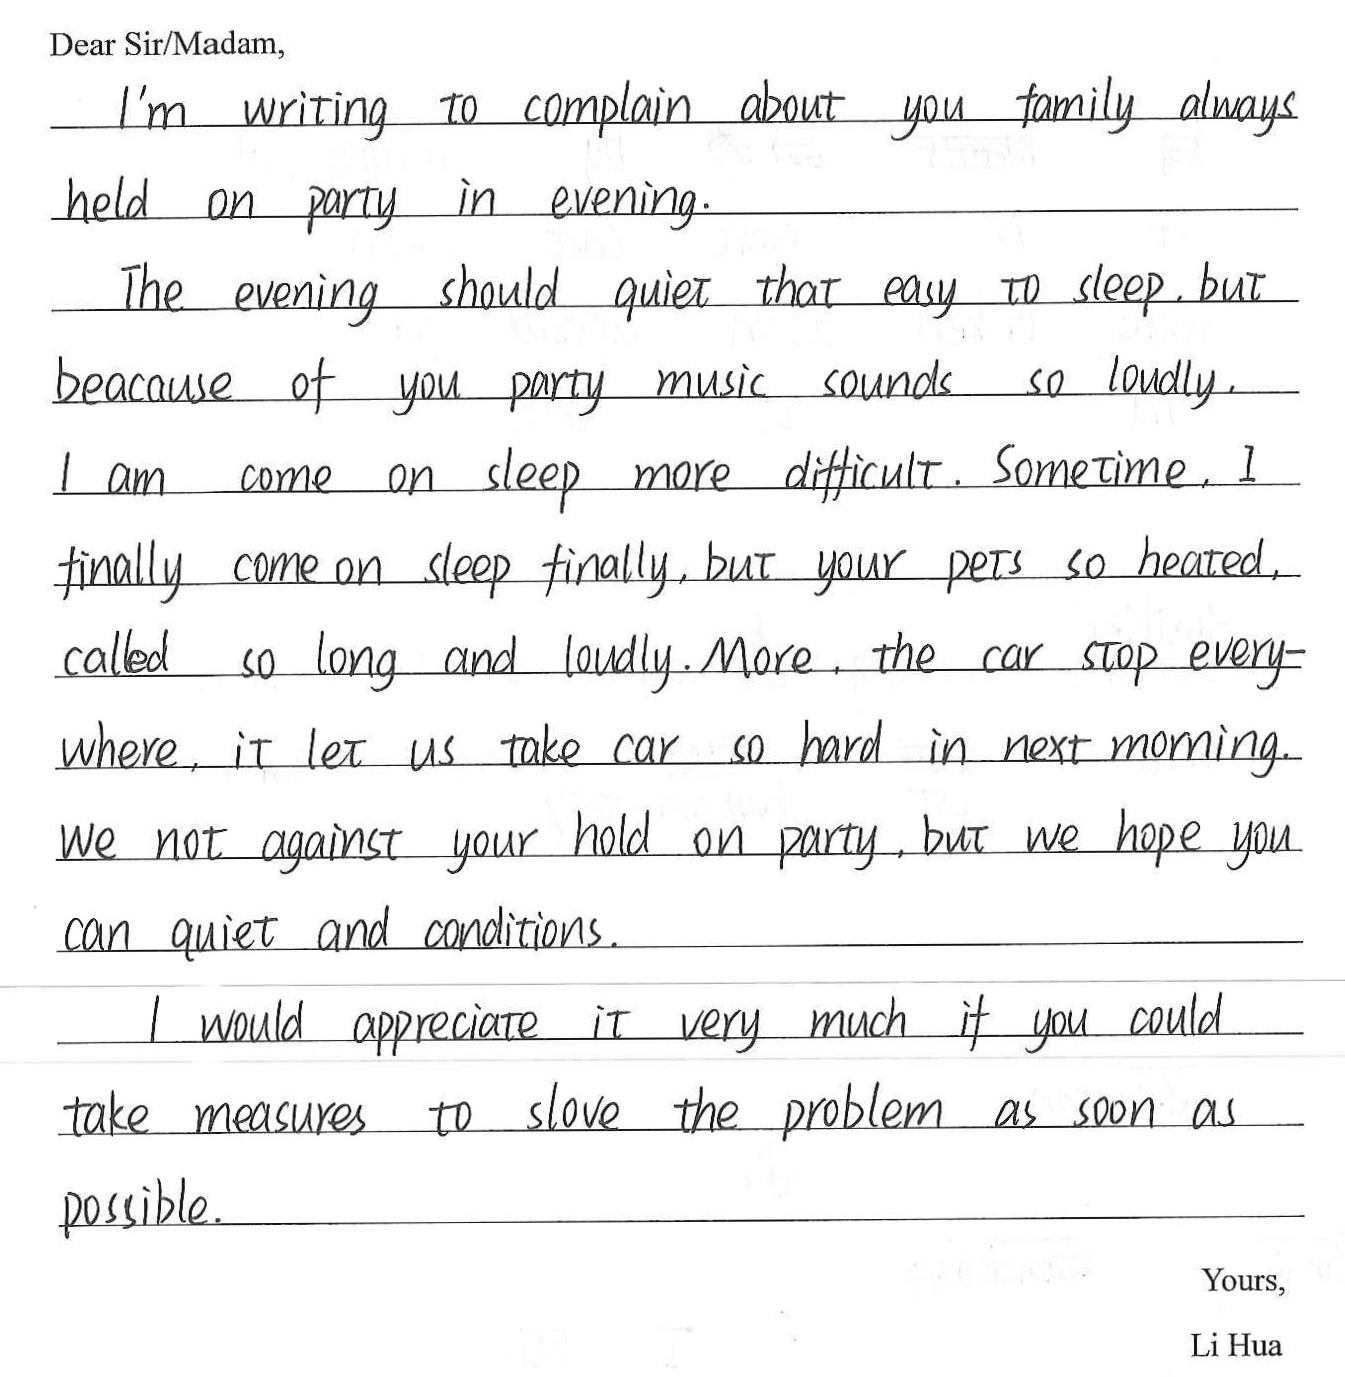 Dear Sir/Madam,
I'm writing to complain about you family always
held on party in evening.
The evening should quiet that easy to sleep, but
beacause of you party music sounds so loudly.
I am come on sleep more difficult. Sometime, I
finally come on sleep finally, but your pets so heated,
called so long and loudly. More, the car stop every-
where, it let us take car so hard in next morning.
We not against your hold on party, but we hope you
can quiet and conditions.
I would appreciate it very much if you could
take measures to slove the problem as soon as
possible.
Yours,
Li Hua